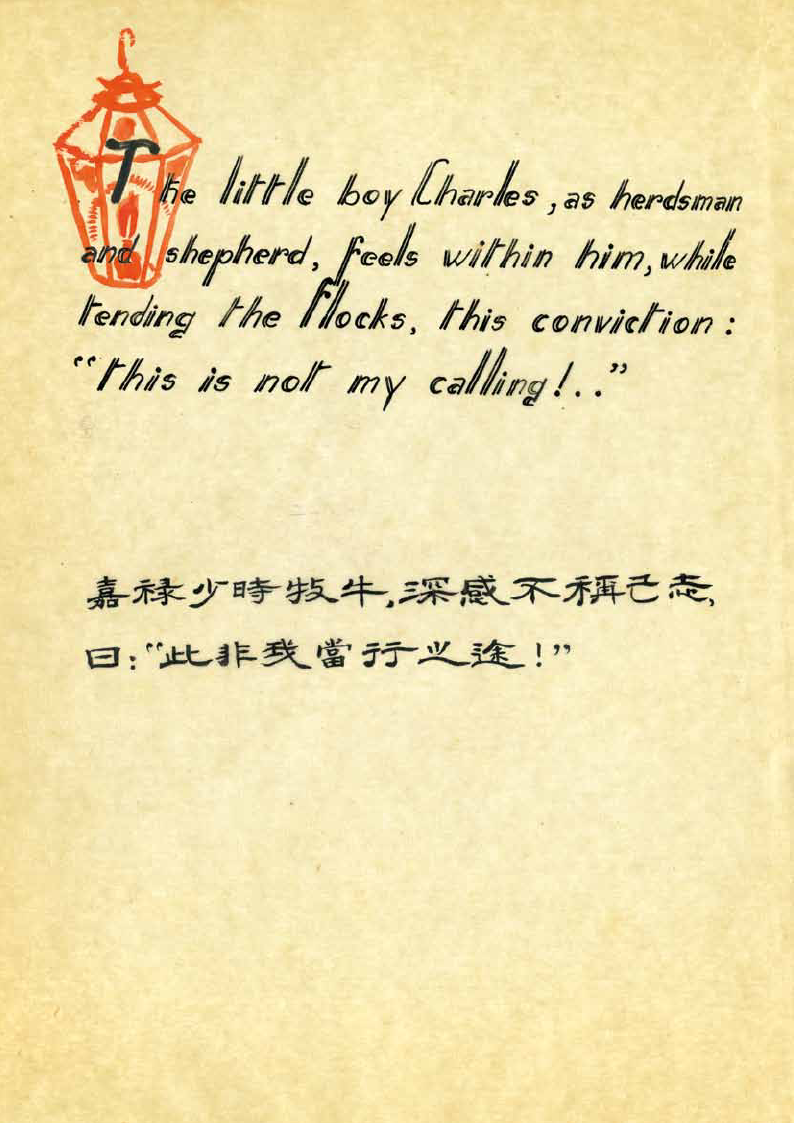 The little boy Charles, as herdsman
and shepherd, feels within him, while
tending the flocks, this conviction:
“this is not my calling!..”
嘉禄少時牧牛,深感不稱己志,
曰:“此非我當行之途!”